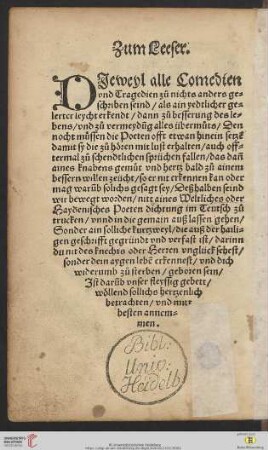 Zum Leeser.
DJeweyl alle Comedien
vnd Tragedien zů nichts anders ge-
schriben seind / als ain yedtlicher ge-
lerter leycht erkendt / dann zů besserung des le-
bens / vnd zů vermeydũg alles übermůts / Den
nocht můssen die Poeten offt etwan hinein setzẽ
damit sy die zů hören mit lust erhalten / auch off-
termal zů schendtlichen sprüchen fallen / das dañ
aines knabens gemüt vnd hertz bald zů ainem
bessern willen zeücht / so er nit erkennen kan oder
mag warüb solichs gesagt sey / Deßhalben seind
wir bewegt worden / nitt aines Weltliches oder
Haydenisches Poeten dichtung im Teutsch zů
trucken / vnnd in die gemain auß lassen gehen /
Sonder ain solliche kurtzweyl / die auß der haili-
gen geschrifft gegründt vnd verfast ist / darinn
du nit des knechts oder Herren vnglück sehest /
sonder dein aygen lebẽ erkennest / vnd dich
widerumb zů sterben / geboren sein /
Ist darüb vnser fleyssig gebett /
wöllend sollichs hertzenlich
betrachten / vnd nur
besten annem-
men.
Bibl:
Univ:
Heidelb.